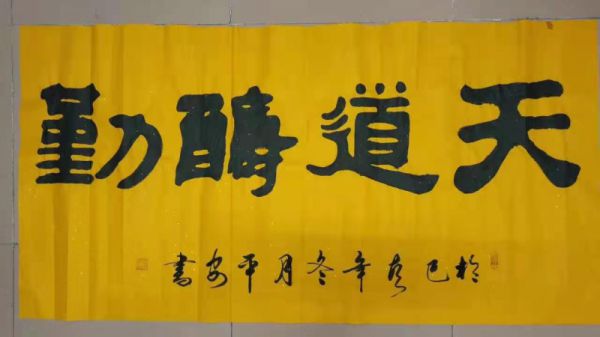 天道酬勤
於己亥年冬月平安書